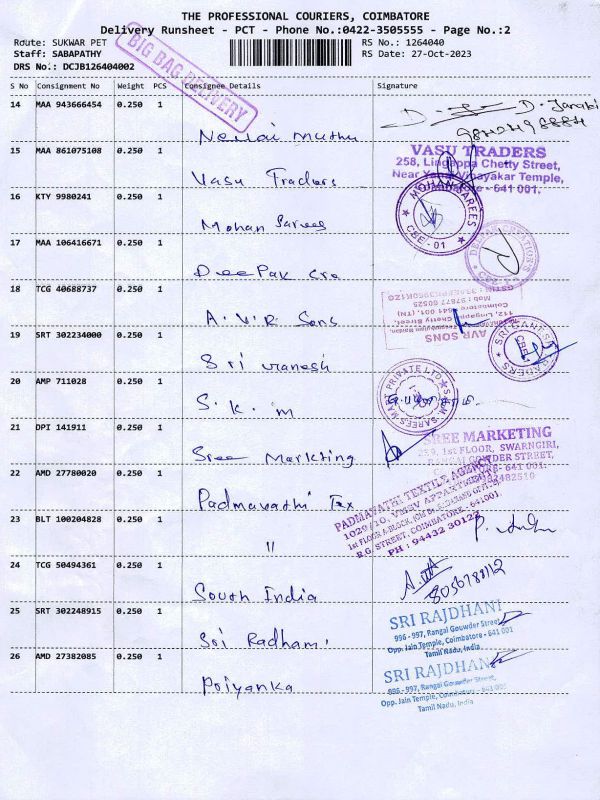 THE PROFESSIONAL COURIERS, COIMBATORE
Delivery Runsheet - PCT - Phone No.:0422-3505555 - Page No.:2
Route: SUKWAR PET
RS No.: 1264040
Staff: SABAPATHY
RS Date: 27-Oct-2023
DRS No.: DCJB126404002
BIG BAG DELIVERY
S No Consignment No Weight PCS Consignee Details Signature
14 MAA 943666454 0.250 1
Nellai Muthu
D. Janaki
15 MAA 861075108 0.250 1
Vasu Traders
VASU TRADERS
258, Lingappa Chetty Street,
Near Vinayakar Temple,
641 001.
16 KTY 9980241 0.250 1
Mohan Sarees
MOHAN SAREES
CBE - 01
17 MAA 106416671 0.250 1
Deepak Cre
18 TCG 40688737 0.250 1
A.V.R Sons
AVR SONS
112, Lingappa Chetty Street,
Coimbatore - 641 001. (TN)
Mob : 97877 60525
19 SRT 302234000 0.250 1
Sri Ganesh
SRI GANESH TRADERS
CBE
20 AMP 711028 0.250 1
S.K.M
PRIVATE LTD
21 DPI 141911 0.250 1
Sree Markting
SREE MARKETING
1st FLOOR, SWARNGIRI,
GOWDER STREET,
641 001.
22 AMD 27780020 0.250 1
Padmavathi Tex
PADMAVATHI TEXTILE AGENCY
1029/10,
R.G. STREET, COIMBATORE - 641001.
PH : 94432 30122
23 BLT 100204828 0.250 1
"
24 TCG 50494361 0.250 1
South India
25 SRT 302248915 0.250 1
Sri Radhani
SRI RAJDHANI
996 - 997, Rangai Gouwder Street
Opp. Jain Temple, Coimbatore - 641 001
Tamil Nadu, India
26 AMD 27382085 0.250 1
Priyanka
SRI RAJDHANI
996 - 997, Rangai Gouwder Street,
Opp. Jain Temple, Coimbatore - 641 001
Tamil Nadu, India